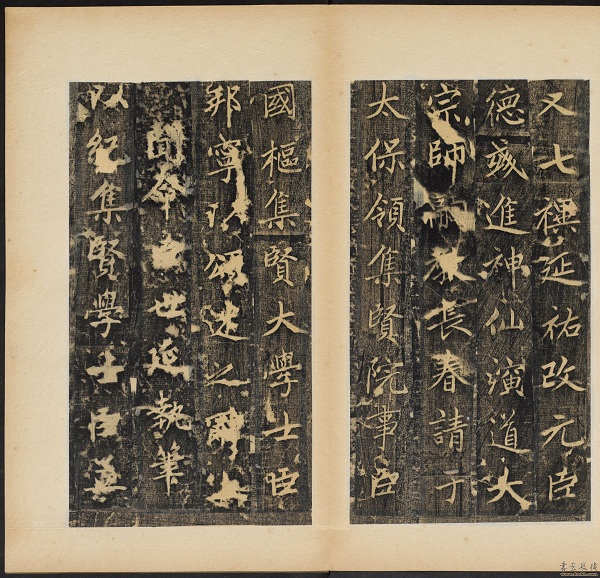 又七禩延祐改元臣
德彧進神仙演道大
宗師 教長春請于
太保領集賢院事臣
國樞集賢大學士臣
邦寧以頌述之辭
聞命 世延執筆
以紀集賢學士臣孟